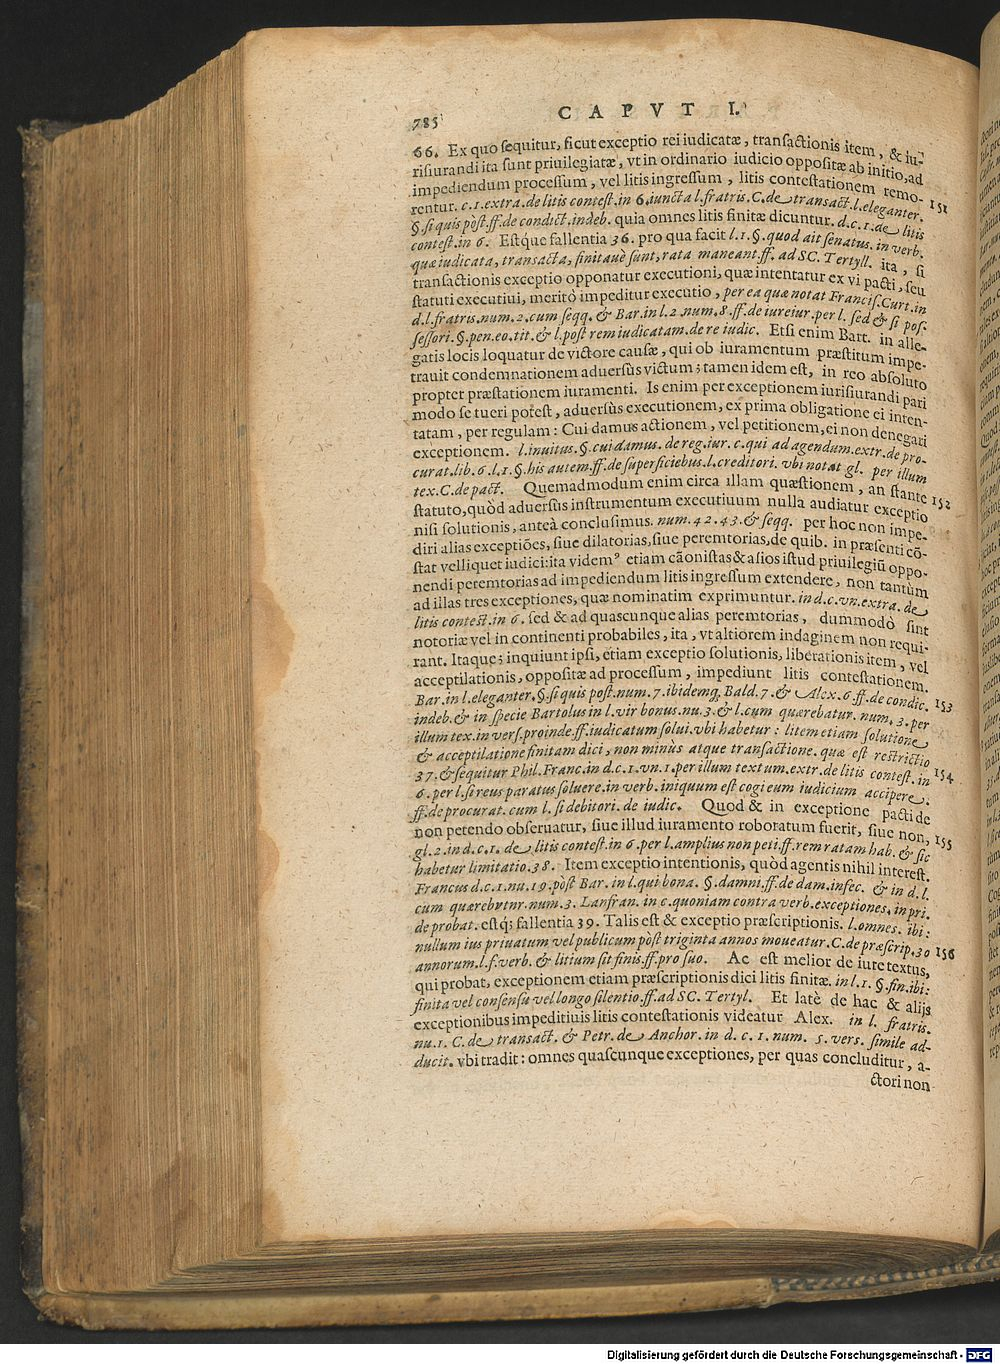 785 CAPVT I.
66. Ex quo sequitur, sicut exceptio rei iudicatæ, transactionis item, & iu-
risiurandi ita sunt priuilegiatæ, vt in ordinario iudicio oppositæ ab initio, ad
impediendum processum, vel litis ingressum, litis contestationem remo-
rentur. c. 1. extra. de litis contest. in 6. iuncta l. fratris. C. de transact. l. eleganter. 151
§. si quis pòst. ff. de condict. indeb. quia omnes litis finitæ dicuntur. d. c. 1. de litis
contest. in 6. Estque fallentia 36. pro qua facit l. 1. §. quod ait senatus. in verb.
quæ iudicata, transacta, finitauè sunt, rata maneant. ff. ad SC. Tertyll. ita, si
transactionis exceptio opponatur executioni, quæ intentatur ex vi pacti, seu
statuti executiui, meritò impeditur executio, per ea quæ notat Francis. Curt. in
d. l. fratris. num. 2. cum seqq. & Bar. in l. 2. num. 8. ff. de iureiur. per l. sed & si pos-
sessori. §. pen. eo. tit. & l. post rem iudicatam. de re iudic. Etsi enim Bart. in alle-
gatis locis loquatur de victore causæ, qui ob iuramentum præstitum impe-
trauit condemnationem aduersùs victum; tamen idem est, in reo absoluto
propter præstationem iuramenti. Is enim per exceptionem iurisiurandi pari
modo se tueri potest, aduersùs executionem, ex prima obligatione ei inten-
tatam, per regulam: Cui damus actionem, vel petitionem, ei non denegari
exceptionem. l. inuitus. §. cui damus. de reg. iur. c. qui ad agendum. extr. de pro-
curat. lib. 6. l. 1. §. his autem. ff. de superficiebus. l. creditori. vbi notat gl. per illum
tex. C. de pact. Quemadmodum enim circa illam quæstionem, an stante 152
statuto, quòd aduersùs instrumentum executiuum nulla audiatur exceptio
nisi solutionis, anteà conclusimus. num. 42. 43. & seqq. per hoc non impe-
diri alias exceptiões, siue dilatorias, siue peremtorias, de quib. in præsenti cō-
stat vel liquet iudici: ita videmꝰ etiam cãonistas & alios istud priuilegiū oppo-
nendi peremtorias ad impediendum litis ingressum extendere, non tantùm
ad illas tres exceptiones, quæ nominatim exprimuntur. in d. c. vn. extra. de
litis contest. in 6. sed & ad quascunque alias peremtorias, dummodò sint
notoriæ vel in continenti probabiles, ita, vt altiorem indaginem non requi-
rant. Itaque; inquiunt ipsi, etiam exceptio solutionis, liberationis item, vel
acceptilationis, oppositæ ad processum, impediunt litis contestationem.
Bar. in l. eleganter. §. si quis post. num. 7. ibidemq; Bald. 7. & Alex. 6. ff. de condic. 153
indeb. & in specie Bartolus in l. vir bonus. nu. 3. & l. cum quærebatur. num. 3. per
illum tex. in vers. proinde. ff. iudicatum solui. vbi habetur: litem etiam solutione
& acceptilatione finitam dici, non minus atque transactione. quæ est restrictio
37. & sequitur Phil. Franc. in d. c. 1. vn. 1. per illum textum. extr. de litis contest. in 154
6. per l. si reus paratus soluere. in verb. iniquum est cogi eum iudicium accipere.
ff. de procurat. cum l. si debitori. de iudic. Quod & in exceptione pacti de
non petendo obseruatur, siue illud iuramento roboratum fuerit, siue non, 155
gl. 2. in d. c. 1. de litis contest. in 6. per l. amplius non peti. ff. rem ratam hab. & sic
habetur limitatio. 38. Item exceptio intentionis, quòd agentis nihil interest.
Francus d. c. 1. nu. 19. pòst Bar. in l. qui bona. §. damni. ff. de dam. infec. & in d. l.
cum quærebvtnr. num. 3. Lanfran. in c. quoniam contra verb. exceptiones. in pri.
de probat. estq; fallentia 39. Talis est & exceptio præscriptionis. l. omnes. ibi:
nullum ius priuatum vel publicum pòst triginta annos moueatur. C. de præscrip. 30 156
annorum. l. f. verb. & litium sit finis. ff. pro suo. Ac est melior de iure textus,
qui probat, exceptionem etiam præscriptionis dici litis finitæ. in l. 1. §. fin. ibi:
finita vel consensu vel longo silentio. ff. ad SC. Tertyl. Et latè de hac & alijs
exceptionibus impeditiuis litis contestationis videatur Alex. in l. fratris.
nu. 1. C. de transact. & Petr. de Anchor. in d. c. 1. num. 5. vers. simile ad-
ducit. vbi tradit: omnes quascunque exceptiones, per quas concluditur, a-
ctori non
Digitalisierung gefördert durch die Deutsche Forschungsgemeinschaft - DFG